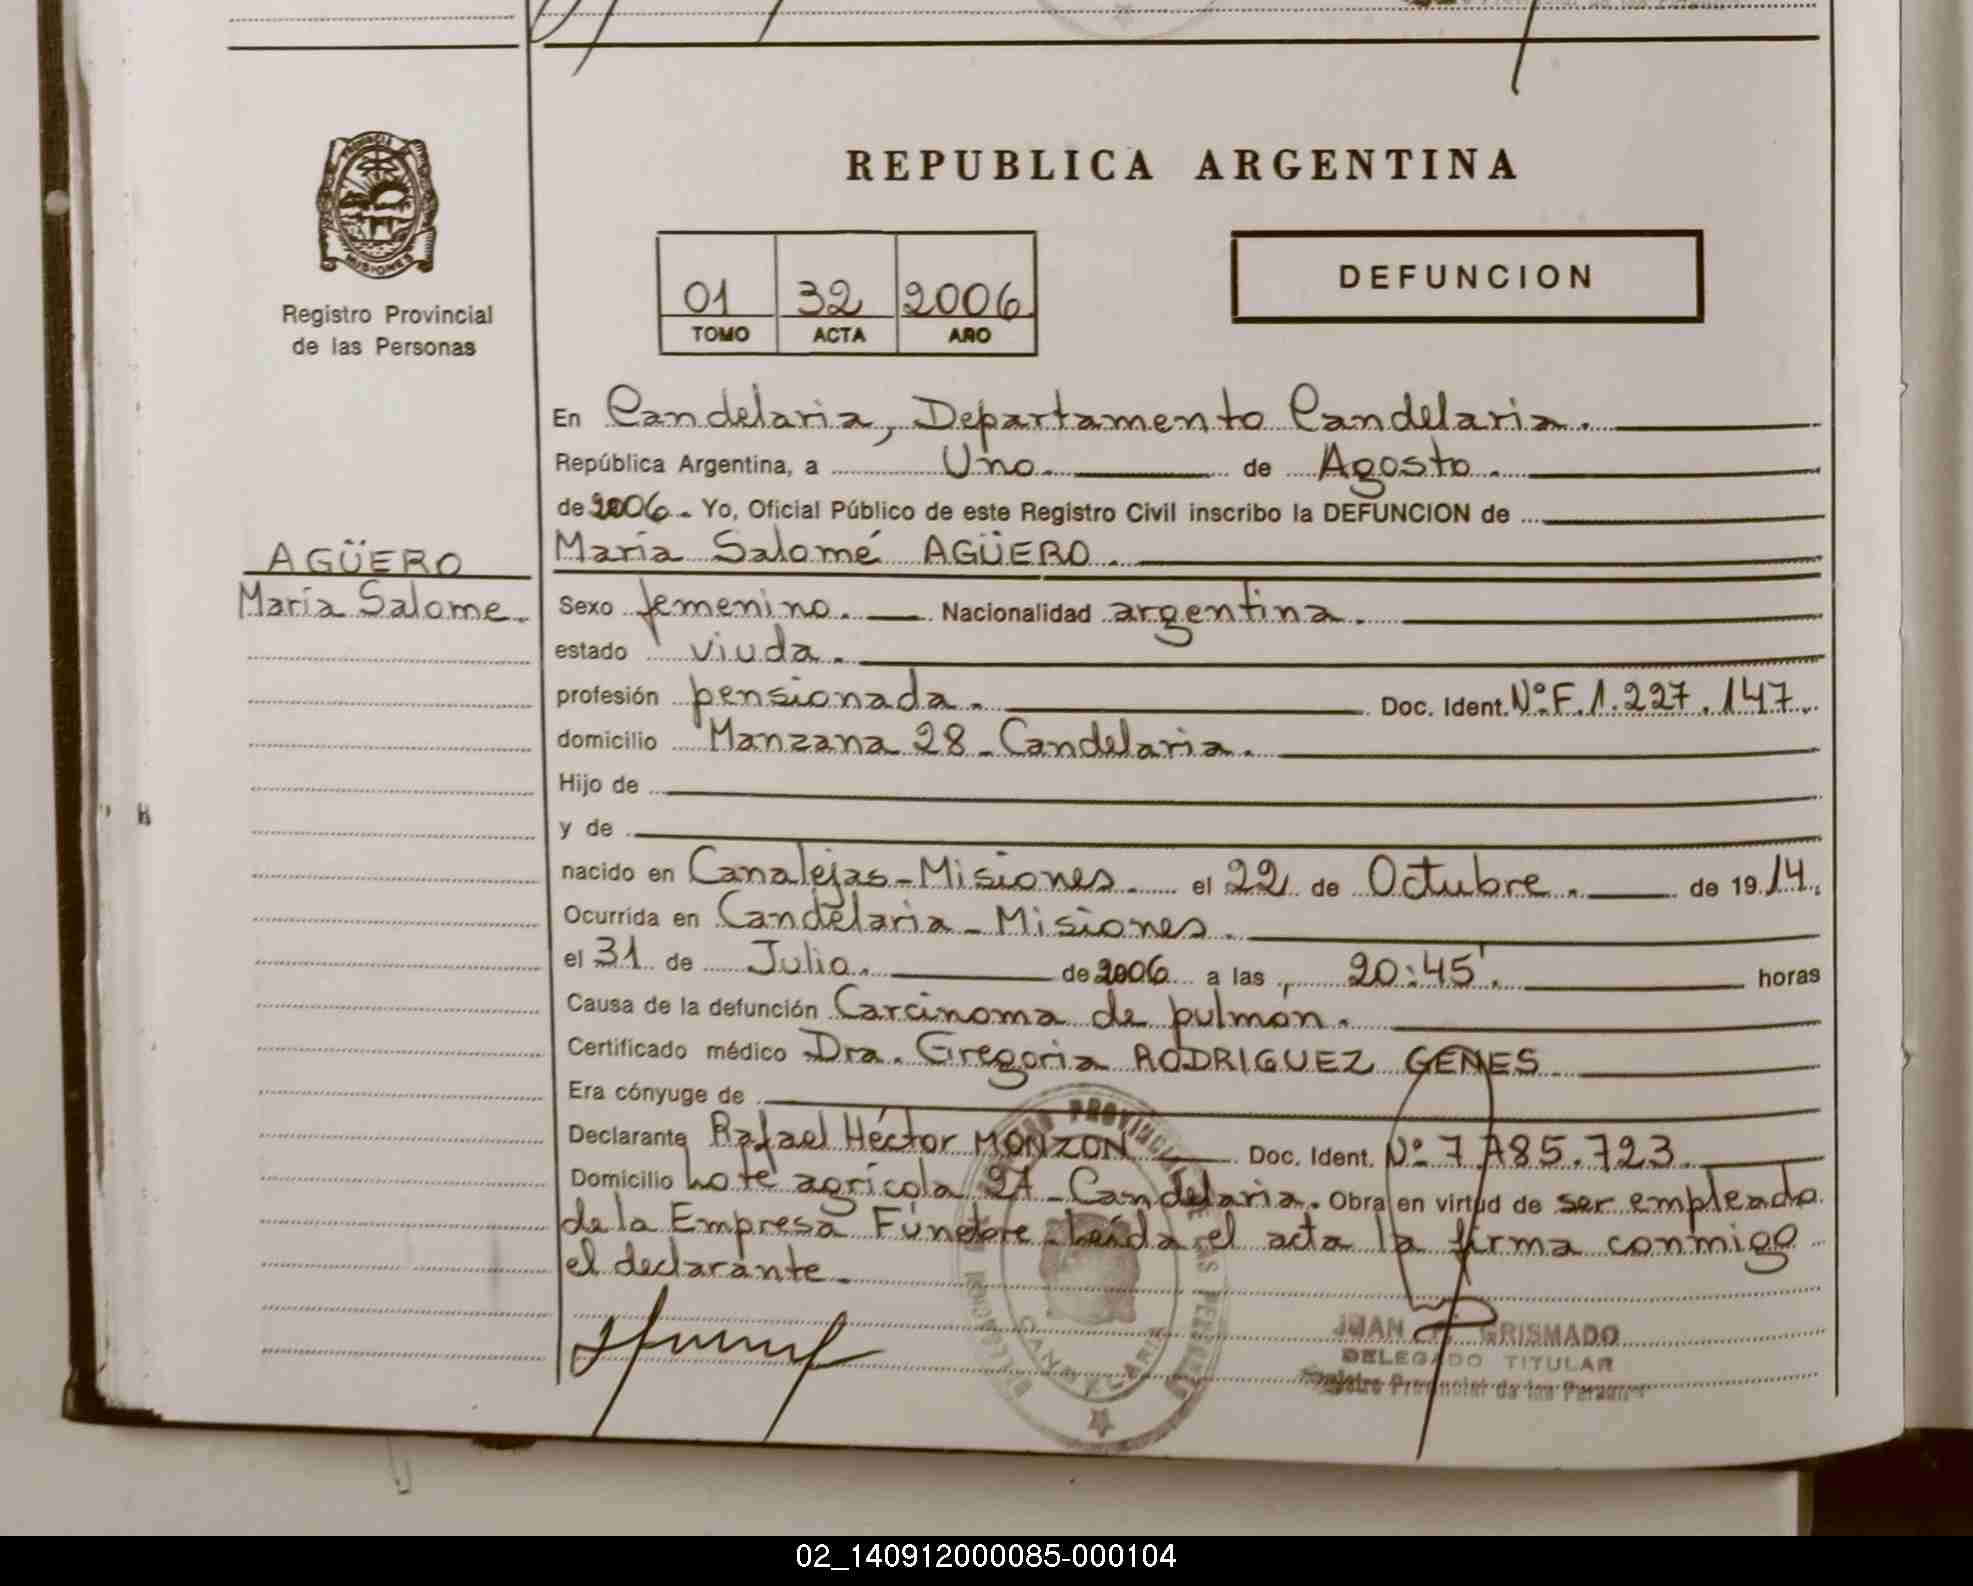 REPUBLICA ARGENTINA
PROVINCIA DE
MISIONES
Registro Provincial
de las Personas
01 32 2006
TOMO ACTA AÑO
DEFUNCION
AGÜERO
María Salome.
En Candelaria, Departamento Candelaria.
República Argentina, a Uno. de Agosto.
de 2006. Yo, Oficial Público de este Registro Civil inscribo la DEFUNCION de
María Salomé AGÜERO.
Sexo femenino. Nacionalidad argentina.
estado viuda.
profesión pensionada. Doc. Ident. Nº F.1.227.147.
domicilio Manzana 28 - Candelaria.
Hijo de
y de
nacido en Canalejas - Misiones el 22 de Octubre. de 1914.
Ocurrida en Candelaria - Misiones.
el 31 de Julio. de 2006 a las 20:45'. horas
Causa de la defunción Carcinoma de pulmón.
Certificado médico Dra. Gregoria RODRIGUEZ GENES
Era cónyuge de
Declarante Rafael Héctor MONZON Doc. Ident. Nº 7.785.723.
Domicilio Lote agrícola 27 - Candelaria. Obra en virtud de ser empleado
de la Empresa Fúnebre - Leída el acta la firma conmigo
el declarante.
JUAN GRISMADO
DELEGADO TITULAR
Registro Provincial de las Personas
CANDELARIA
02_140912000085-000104